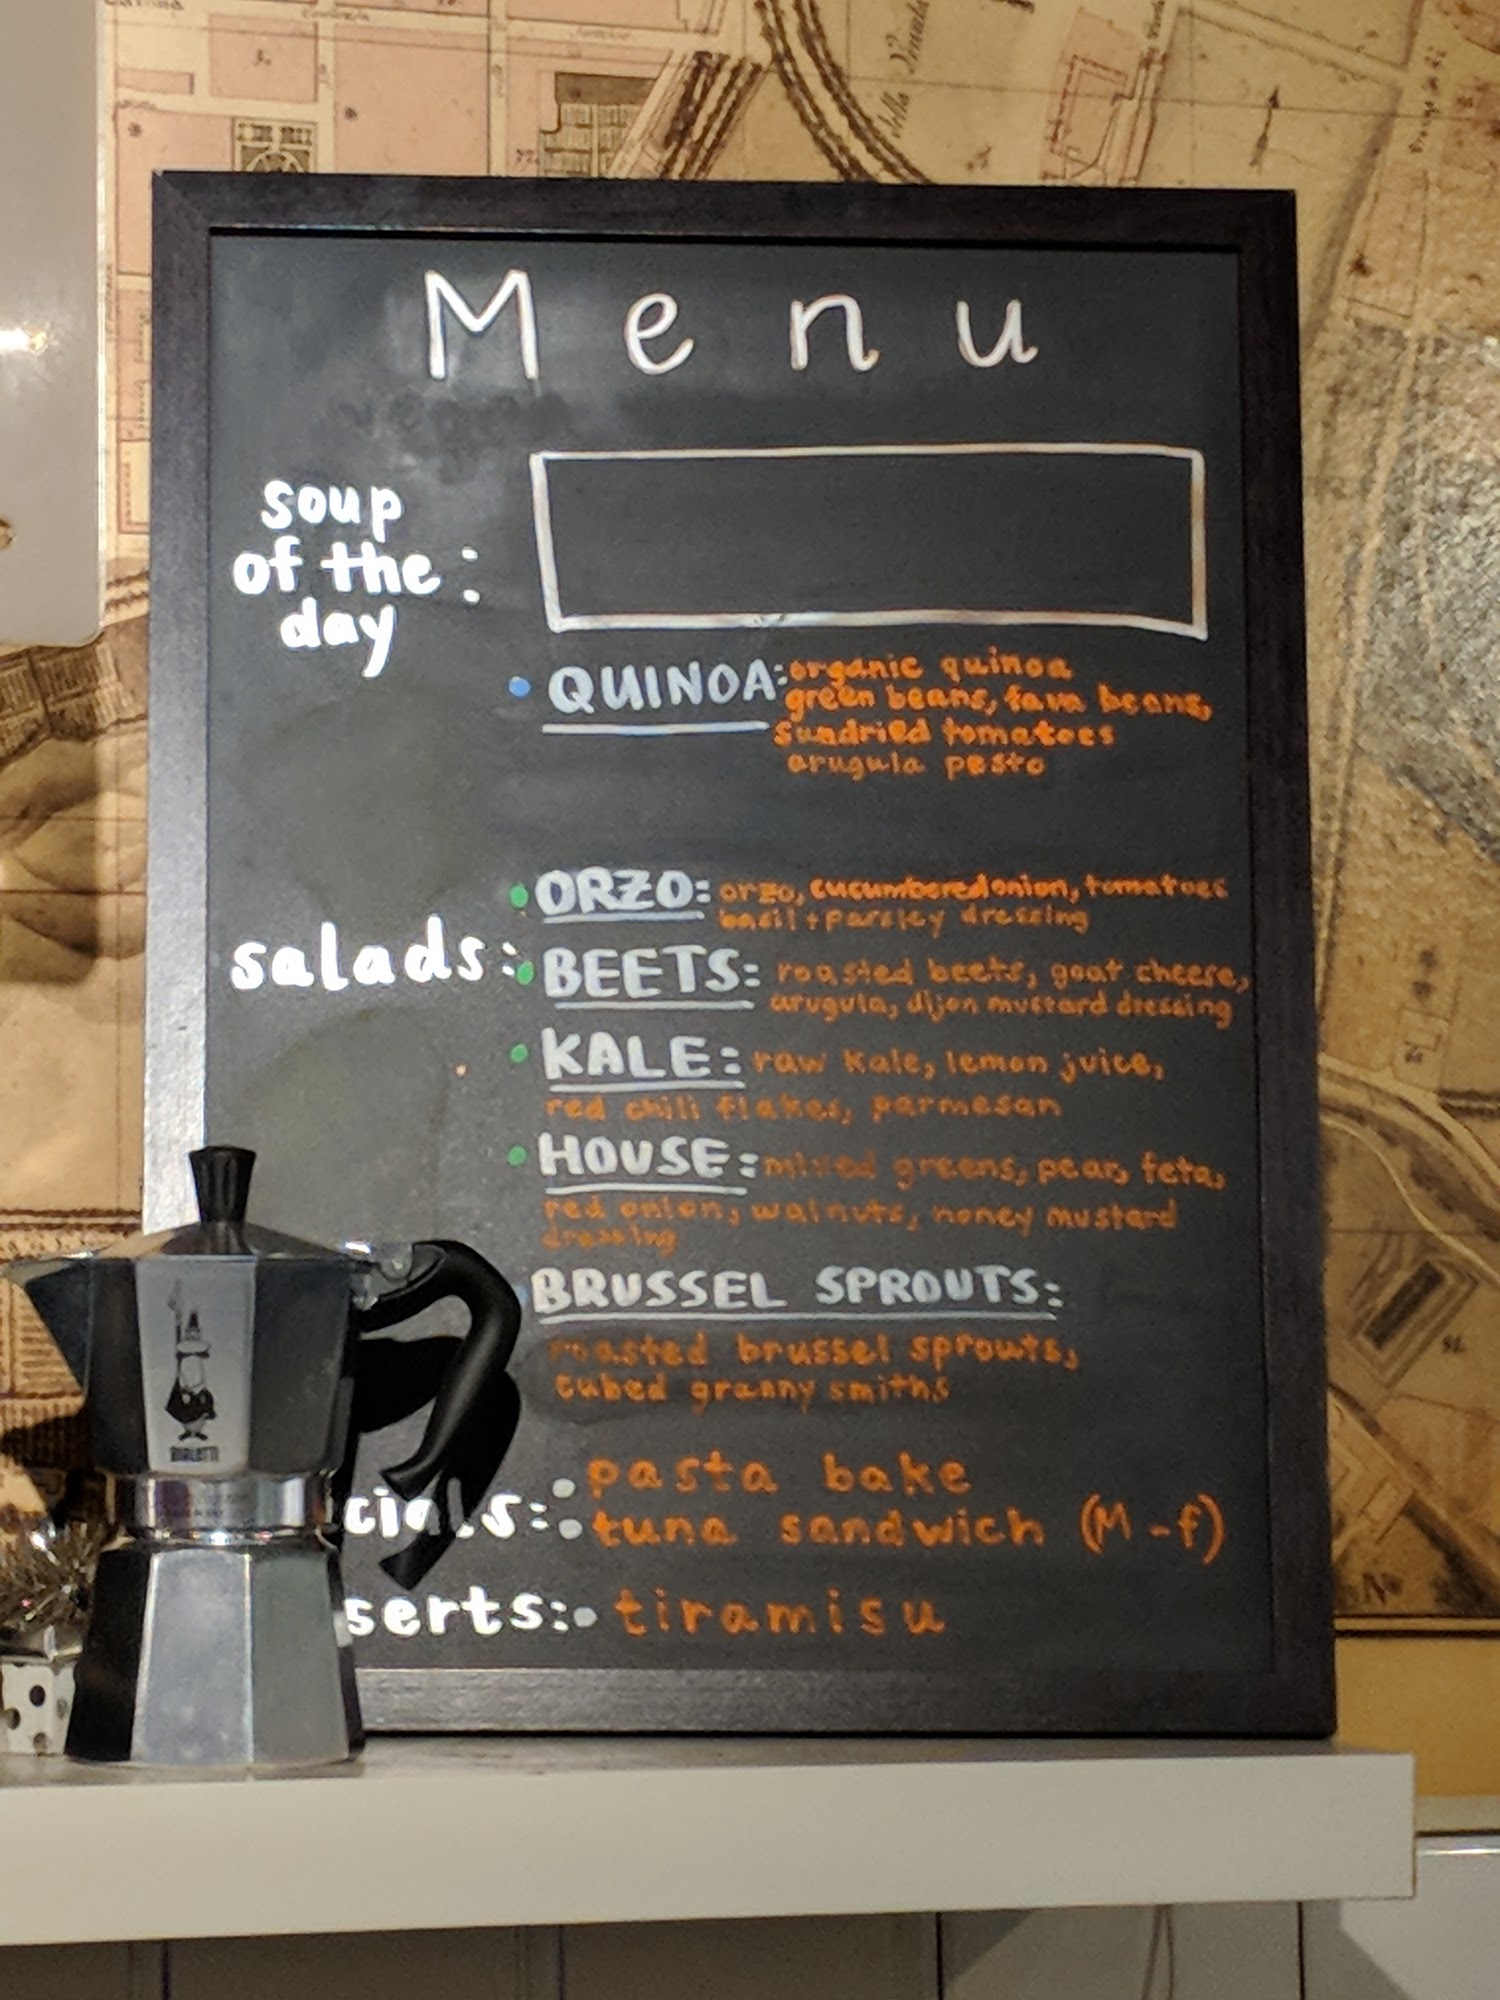 Menu
soup
of the :
day
• QUINOA: organic quinoa
green beans, fava beans,
sundried tomatoes
arugula pesto
salads:
• ORZO: orzo, cucumber, red onion, tomatoes
basil + parsley dressing
• BEETS: roasted beets, goat cheese,
arugula, dijon mustard dressing
• KALE: raw kale, lemon juice,
red chili flakes, parmesan
• HOUSE: mixed greens, pear, feta,
red onion, walnuts, honey mustard
dressing
BRUSSEL SPROUTS:
roasted brussel sprouts,
cubed granny smiths
cials: • pasta bake
• tuna sandwich (M-f)
serts: • tiramisu
BIALETTI